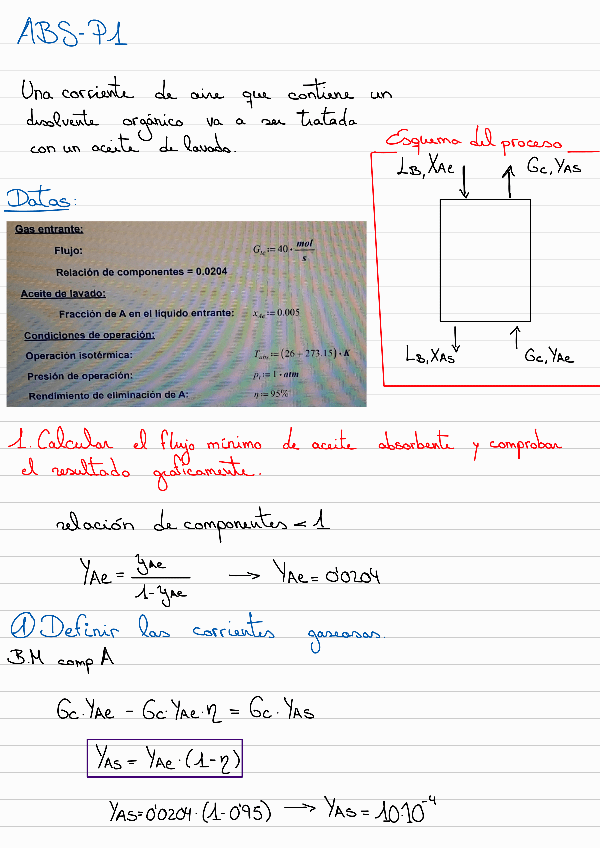 ABS-P1
Una corriente de aire que contiene un
disolvente orgánico va a ser tratada
con un aceite de lavado.
Esquema del proceso
LB, XAe
GC, YAS
LB, XAS
GC, YAe
Datos:
Gas entrante:
Flujo: G₁ₑ := 40 · mol/s
Relación de componentes = 0.0204
Aceite de lavado:
Fracción de A en el líquido entrante: xAe := 0.005
Condiciones de operación:
Operación isotérmica: := (26 + 273.15) · K
Presión de operación: := 1 · atm
Rendimiento de eliminación de A: η := 95%
1. Calcular el flujo mínimo de aceite absorbente y comprobar
el resultado gráficamente.
relación de componentes < 1
YAe = yAe / 1-yAe → YAe = 0'0204
① Definir las corrientes gaseosas.
B.M comp A
GC·YAe - GC·YAe·η = GC·YAS
YAS = YAe·(1-η)
YAS = 0'0204·(1-0'95) → YAS = 10·10⁻⁴